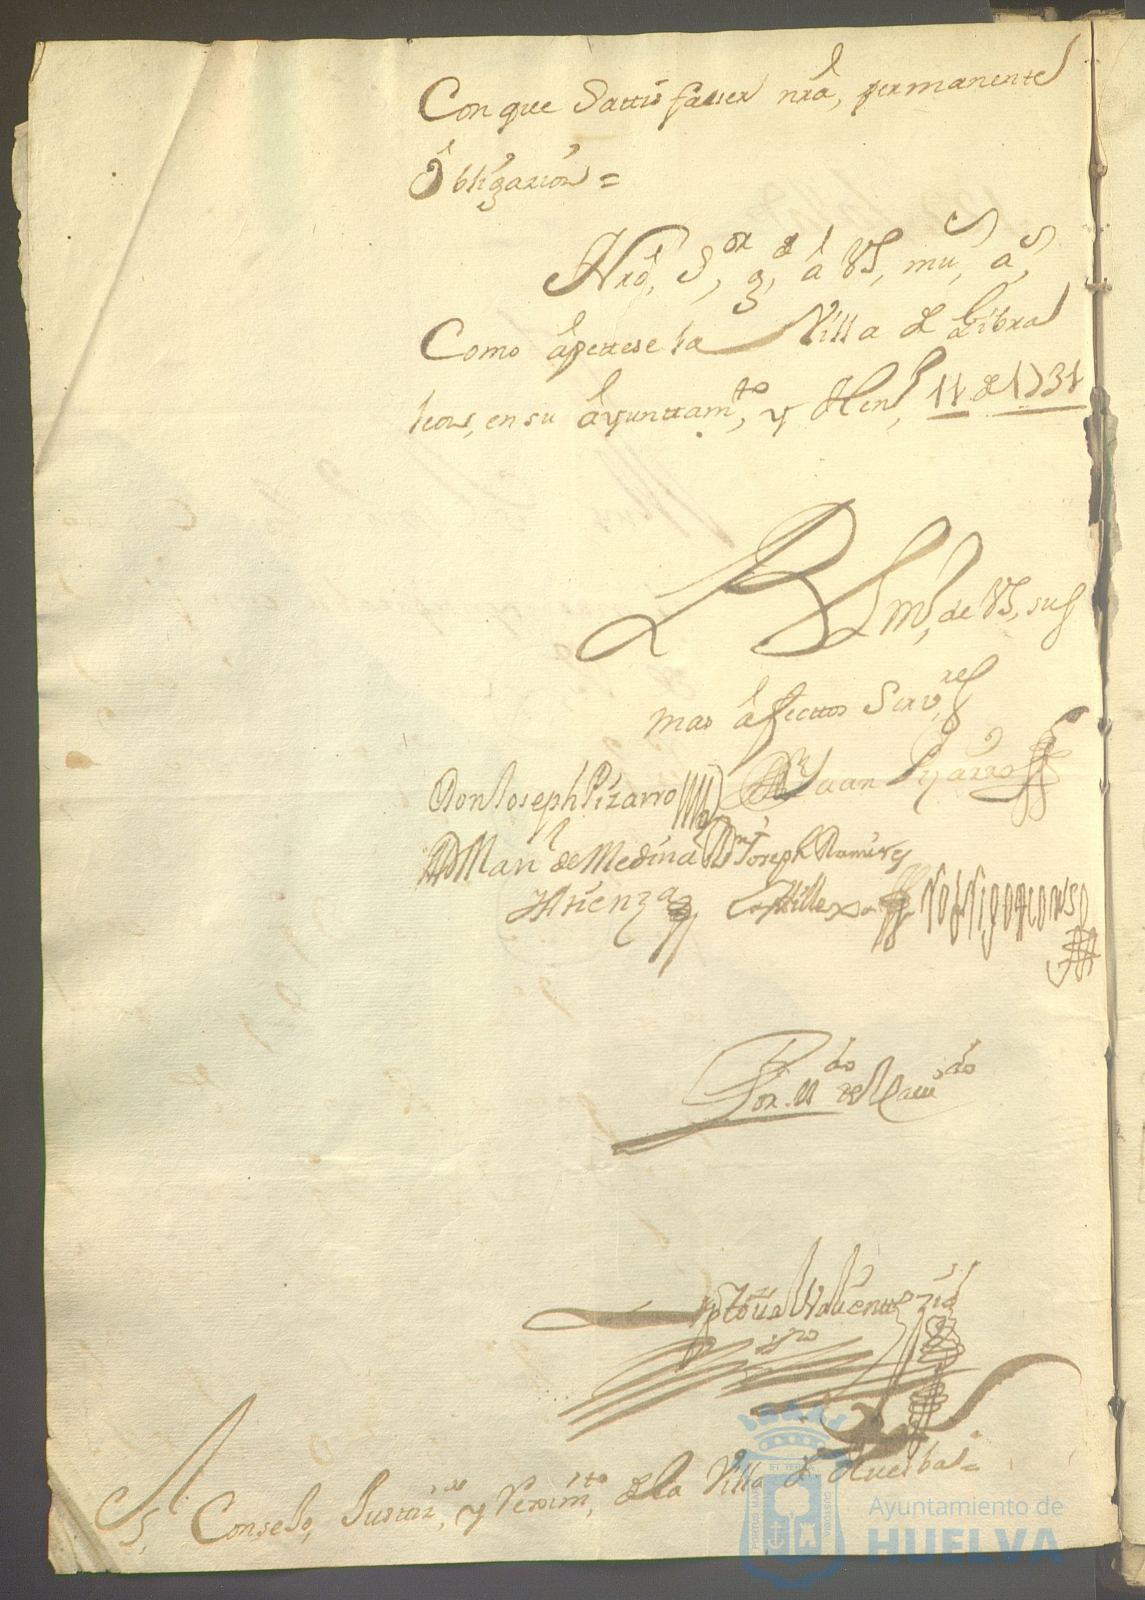 Con que Sattisfaser nrâ, permanente
Obligazion =
Nrô, Sor, gde, â VS, mus, as,
Como âpettese la Villa de Gibra
leon, en su âyunttamto, y Hen, 11 de 1731
BLm, de VS, sus
mas âfectos Servres
Don Joseph Pizarro Dn Juan Pizarro
Dn Man de Medina Dn Joseph Ramires
Atienza Castillexo Rodrigo Alconso
Por Mdo de
Consejo, Justizia, y Reximto, de la Villa de Huelba =
Ayuntamiento de
HUELVA